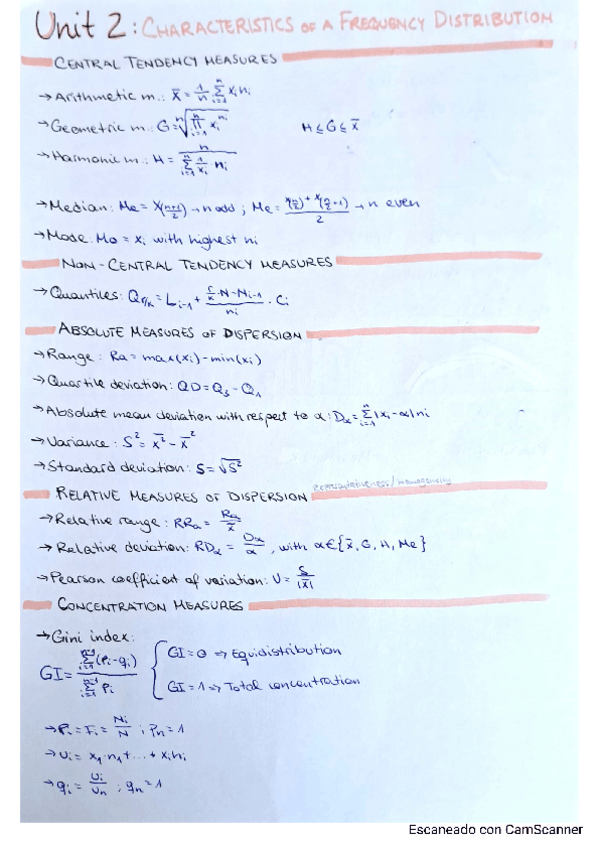 Unit 2: CHARACTERISTICS OF A FREQUENCY DISTRIBUTION
CENTRAL TENDENCY MEASURES
→Arithmetic m.: x̄ = 1/n · Σ_{i=1}^{n} xᵢnᵢ
→Geometric m.: G = ⁿ√(∏_{i=1}^{n} xᵢ^{nᵢ}) H ≤ G ≤ x̄
→Harmonic m.: H = n / (Σ_{i=1}^{n} 1/xᵢ · nᵢ)
→Median: Me = X_((n+1)/2) → n odd ; Me = (X_(n/2) + X_(n/2+1)) / 2 → n even
→Mode: Mo = xᵢ with highest nᵢ
NON-CENTRAL TENDENCY MEASURES
→Quantiles: Q_{r/k} = L_{i-1} + (r/k · N − N_{i-1}) / nᵢ · Cᵢ
ABSOLUTE MEASURES OF DISPERSION
→Range: Ra = max(xᵢ) − min(xᵢ)
→Quartile deviation: QD = Q₃ − Q₁
→Absolute mean deviation with respect to α: D_α = Σ_{i=1}^{n} |xᵢ − α| nᵢ
→Variance: S² = x̄² − x̄²
→Standard deviation: S = √S²
RELATIVE MEASURES OF DISPERSION representativeness / homogeneity
→Relative range: RRa = Ra / x̄
→Relative deviation: RD_α = D_α / α , with α ∈ {x̄, G, H, Me}
→Pearson coefficient of variation: V = S / |x̄|
CONCENTRATION MEASURES
→Gini index:
GI = Σ_{i=1}^{n-1} (Pᵢ − qᵢ) / Σ_{i=1}^{n-1} Pᵢ { GI = 0 ⇒ Equidistribution
GI = 1 ⇒ Total concentration
→Pᵢ = Fᵢ = Nᵢ / N ; Pn = 1
→Uᵢ = x₁·n₁ + ... + xᵢnᵢ
→qᵢ = Uᵢ / Un ; qn = 1
Escaneado con CamScanner